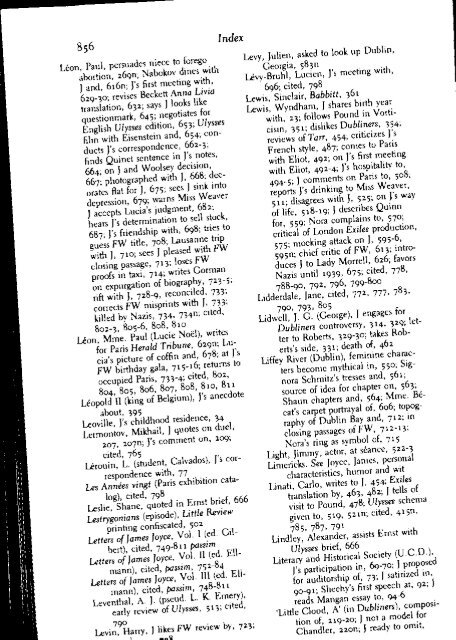 856
Index
Léon, Paul, persuades niece to forego
abortion, 269n; Nabokov dines with
J and, 616n; J's first meeting with,
629-30; revises Beckett Anna Livia
translation, 632; says J looks like
questionmark, 645; negotiates for
English Ulysses edition, 653; Ulysses
film with Eisenstein and, 654; con-
ducts J's correspondence, 662-3;
finds Quinet sentence in J's notes,
664; on J and Woolsey decision,
667; photographed with J, 668; dec-
orates flat for J, 675; sees J sink into
depression, 679; warns Miss Weaver
J accepts Lucia's judgment, 682;
hears J's determination to sell stuck,
687; J's friendship with, 698; tries to
guess FW title, 708; Lausanne trip
with J, 710; sees J pleased with FW
closing passage, 713; loses FW
proofs in taxi, 714; writes Gorman
on expurgation of biography, 723-5;
rift with J, 728-9, reconciled, 733;
corrects FW misprints with J, 733;
killed by Nazis, 734, 734n; cited,
802-3, 805-6, 808, 810
Léon, Mme. Paul (Lucie Noël), writes
for Paris Herald Tribune, 629n; Lu-
cia's picture of coffin and, 678; at J's
FW birthday gala, 715-16; returns to
occupied Paris, 733-4; cited, 802,
804, 805, 806, 807, 808, 810, 811
Léopold II (king of Belgium), J's anecdote
about, 395
Leoville, J's childhood residence, 34
Lermontov, Mikhail, J quotes on duel,
207, 207n; J's comment on, 209;
cited, 765
Lérouin, L. (student, Calvados), J's cor-
respondence with, 77
Les Années vingt (Paris exhibition cata-
log), cited, 798
Leslie, Shane, quoted in Ernst brief, 666
Lestrygonians (episode), Little Review
printing confiscated, 502
Letters of James Joyce, Vol. I (ed. Gil-
bert), cited, 749-811 passim
Letters of James Joyce, Vol. II (ed. Ell-
mann), cited, passim, 752-84
Letters of James Joyce, Vol. III (ed. Ell-
mann), cited, passim, 748-811
Leventhal, A. J. (pseud. L. K. Emery),
early review of Ulysses, 513; cited,
790
Levin, Harry, J likes FW review by, 723;
Levy, Julien, asked to look up Dublin,
Georgia, 583n
Lévy-Bruhl, Lucien, J's meeting with,
696; cited, 798
Lewis, Sinclair, Babbitt, 361
Lewis, Wyndham, J shares birth year
with, 23; follows Pound in Vorti-
cism, 351; dislikes Dubliners, 354,
reviews of Tarr, 454, criticizes J's
French style, 487; comes to Paris
with Eliot, 492; on J's first meeting
with Eliot, 492-4; J's hospitality to,
494-5; J comments on Paris to, 508,
reports J's drinking to Miss Weaver,
511; disagrees with J, 525; on J's way
of life, 518-19; J describes Quinn
for, 559; Nora complains to, 570;
critical of London Exiles production,
575; mocking attack on J, 595-6,
595n; chief critic of FW, 613; intro-
duces J to Lady Morrell, 626; favors
Nazis until 1939, 675; cited, 778,
788-90, 792, 796, 799-800
Lidderdale, Jane, cited, 772, 777, 783,
790, 793, 805
Lidwell, J. G. (George), J engages for
Dubliners controversy, 314, 329; let-
ter to Roberts, 329-30; takes Rob-
erts's side, 331; death of, 462
Liffey River (Dublin), feminine charac-
ters become mythical in, 550, Sig-
nora Schmitz's tresses and, 561;
source of idea for chapter on, 563;
Shaun chapters and, 564; Mme. Bé-
cat's carpet portrayal of, 606; topog-
raphy of Dublin Bay and, 712; in
closing passages of FW, 712-13;
Nora's ring as symbol of, 715
Light, Jimmy, actor, at séance, 522-3
Limericks. See Joyce, James, personal
characteristics, humor and wit
Linati, Carlo, writes to J, 454; Exiles
translation by, 463, 482; J tells of
visit to Pound, 478, Ulysses schema
given to, 519, 521n; cited, 415n,
785, 787, 791
Lindley, Alexander, assists Ernst with
Ulysses brief, 666
Literary and Historical Society (U.C.D.),
J's participation in, 69-70; J proposed
for auditorship of, 73; J satirized in,
90-91; Sheehy's first speech at, 92; J
reads Mangan essay to, 94-6
'Little Cloud, A' (in Dubliners), composi-
tion of, 219-20; J not a model for
Chandler, 220n; J ready to omit,